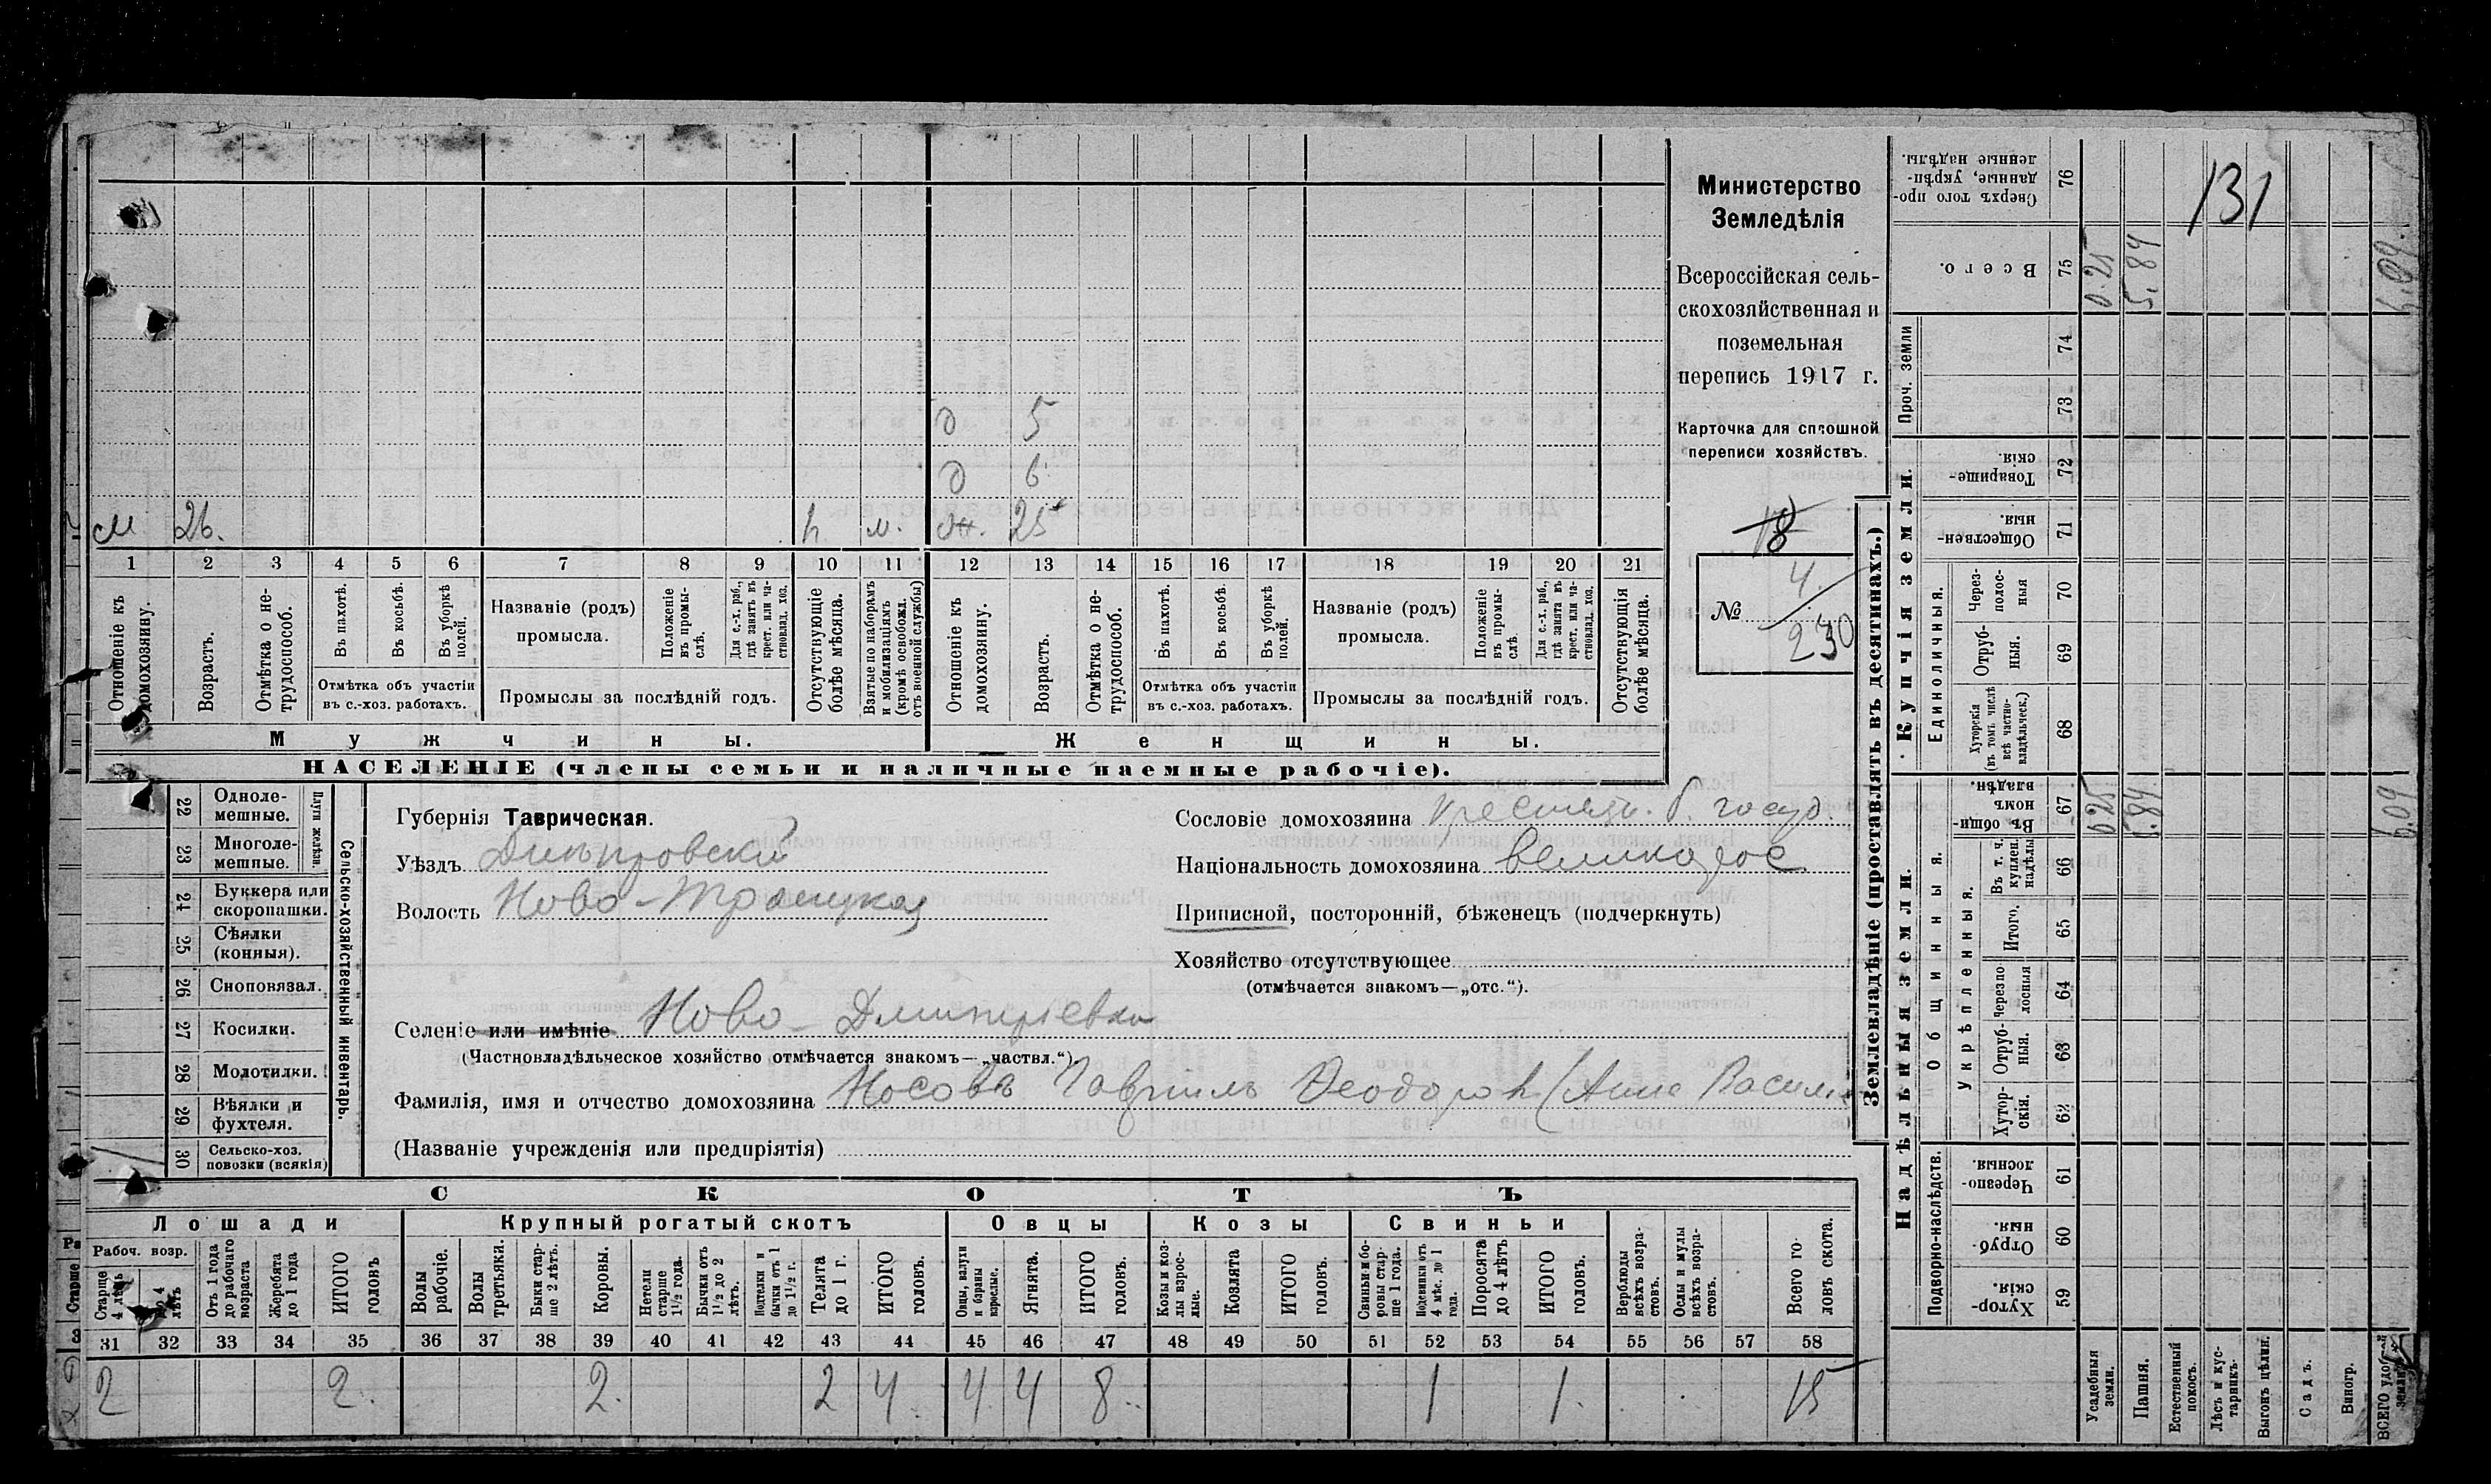 Министерство
Земледѣлія
Всероссійская сель-
скохозяйственная и
поземельная
перепись 1917 г.
Карточка для сплошной
переписи хозяйствъ.
18
№ 4.
230
131
д 5
д 6
м 26. м. 25
1 2 3 4 5 6 7 8 9 10 11 12 13 14 15 16 17 18 19 20 21
Отношеніе къ домохозяину.
Возрастъ.
Отмѣтка о не-трудоспособ.
Въ пахотѣ.
Въ косьбѣ.
Въ уборкѣ полей.
Отмѣтка объ участіи
въ с.-хоз. работахъ.
Названіе (родъ)
промысла.
Положеніе въ промы-слѣ.
Для с.-х. раб., гдѣ занятъ въ крест. или ча-стновлад. хоз.
Промыслы за послѣдній годъ.
Отсутствующіе болѣе мѣсяца.
Взятые по наборамъ и мобилизаціямъ (кромѣ освобожд. отъ военной службы)
Отношеніе къ домохозяину.
Возрастъ.
Отмѣтка о не-трудоспособ.
Въ пахотѣ.
Въ косьбѣ.
Въ уборкѣ полей.
Отмѣтка объ участіи
въ с.-хоз. работахъ.
Названіе (родъ)
промысла.
Положеніе въ промы-слѣ.
Для с.-х. раб., гдѣ занята въ крест. или ча-стновлад. хоз.
Промыслы за послѣдній годъ.
Отсутствующія болѣе мѣсяца.
Мужчины.
Женщины.
НАСЕЛЕНІЕ (члены семьи и наличные наемные рабочіе).
22 Одноле-мешные.
23 Многоле-мешные.
Плуги желѣзн.
24 Буккера или скоропашки.
25 Сѣялки (конныя).
26 Сноповязал.
27 Косилки.
28 Молотилки.
29 Вѣялки и фухтеля.
30 Сельско-хоз. повозки (всякія)
Сельско-хозяйственный инвентарь.
Губернія Таврическая.
Уѣздъ Днѣпровскій
Волость Ново-Троицкая
Сословіе домохозяина крестьян. б. госуд.
Національность домохозяина великорос
Приписной, посторонній, бѣженецъ (подчеркнуть)
Хозяйство отсутствующее
(отмѣчается знакомъ—„отс.“).
Селеніе или имѣніе Ново-Дмитріевка
(Частновладѣльческое хозяйство отмѣчается знакомъ—„частвл.“).
Фамилія, имя и отчество домохозяина Носовъ Гавріилъ Ѳеодоров (Анна
(Названіе учрежденія или предпріятія)
СКОТЪ
Лошади
Крупный рогатый скотъ
Овцы
Козы
Свиньи
Рабоч. возр.
Старше 4 лѣтъ
До 4 лѣтъ
Отъ 1 года до рабочаго возраста
Жеребята до 1 года
ИТОГО головъ
Волы рабочіе.
Волы третьяки.
Быки стар-ше 2 лѣтъ.
Коровы.
Нетели старше 1½ года.
Бычки отъ 1½ до 2 лѣтъ.
Подтелки и бычки отъ 1 до 1½ г.
Телята до 1 г.
ИТОГО головъ.
Овцы, валухи и бараны взрослые.
Ягнята.
ИТОГО головъ.
Козы и коз-лы взрос-лые.
Козлята
ИТОГО головъ.
Свиньи и бо-ровы стар-ше 1 года.
Подсвинки отъ 4 мѣс. до 1 года.
Поросята до 4 лѣтъ
ИТОГО головъ.
Верблюды всѣхъ возра-стовъ.
Ослы и мулы всѣхъ возра-стовъ.
Всего го-ловъ скота.
31 32 33 34 35 36 37 38 39 40 41 42 43 44 45 46 47 48 49 50 51 52 53 54 55 56 57 58
2 2. 2. 2 4. 4. 4 8. 1 1. 15
Землевладѣніе (проставлять въ десятинахъ.)
Купчія земли.
Надѣльныя земли.
Сверхъ того про-данные, укрѣп-ленные надѣлы. 76
Всего. 75 0.25 5.84 6,09.
Проч. земли 74
73
Товарище-скія. 72
Обществен-ныя. 71
Единоличныя.
Через-полос-ныя 70
Отруб-ныя. 69
Хуторскія (въ томъ числѣ всѣ частно-владѣльческ.) 68
Общинныя.
Въ общин-номъ владѣн. 67 0.25 5.84. 6.09
Въ т. ч. куплен. надѣлы 66
Укрѣпленныя.
Итого. 65
Черезпо-лосныя 64
Отруб-ныя. 63
Хутор-скія. 62
Подворно-наслѣдств.
Черезпо-лосныя. 61
Отруб-ныя. 60
Хутор-скія. 59
Усадебныя земли.
Пашня.
Естественный покосъ.
Лѣсъ и кус-тарникъ.
Выгонъ цѣлин.
Садъ.
Виногр.
ВСЕГО удоб земли